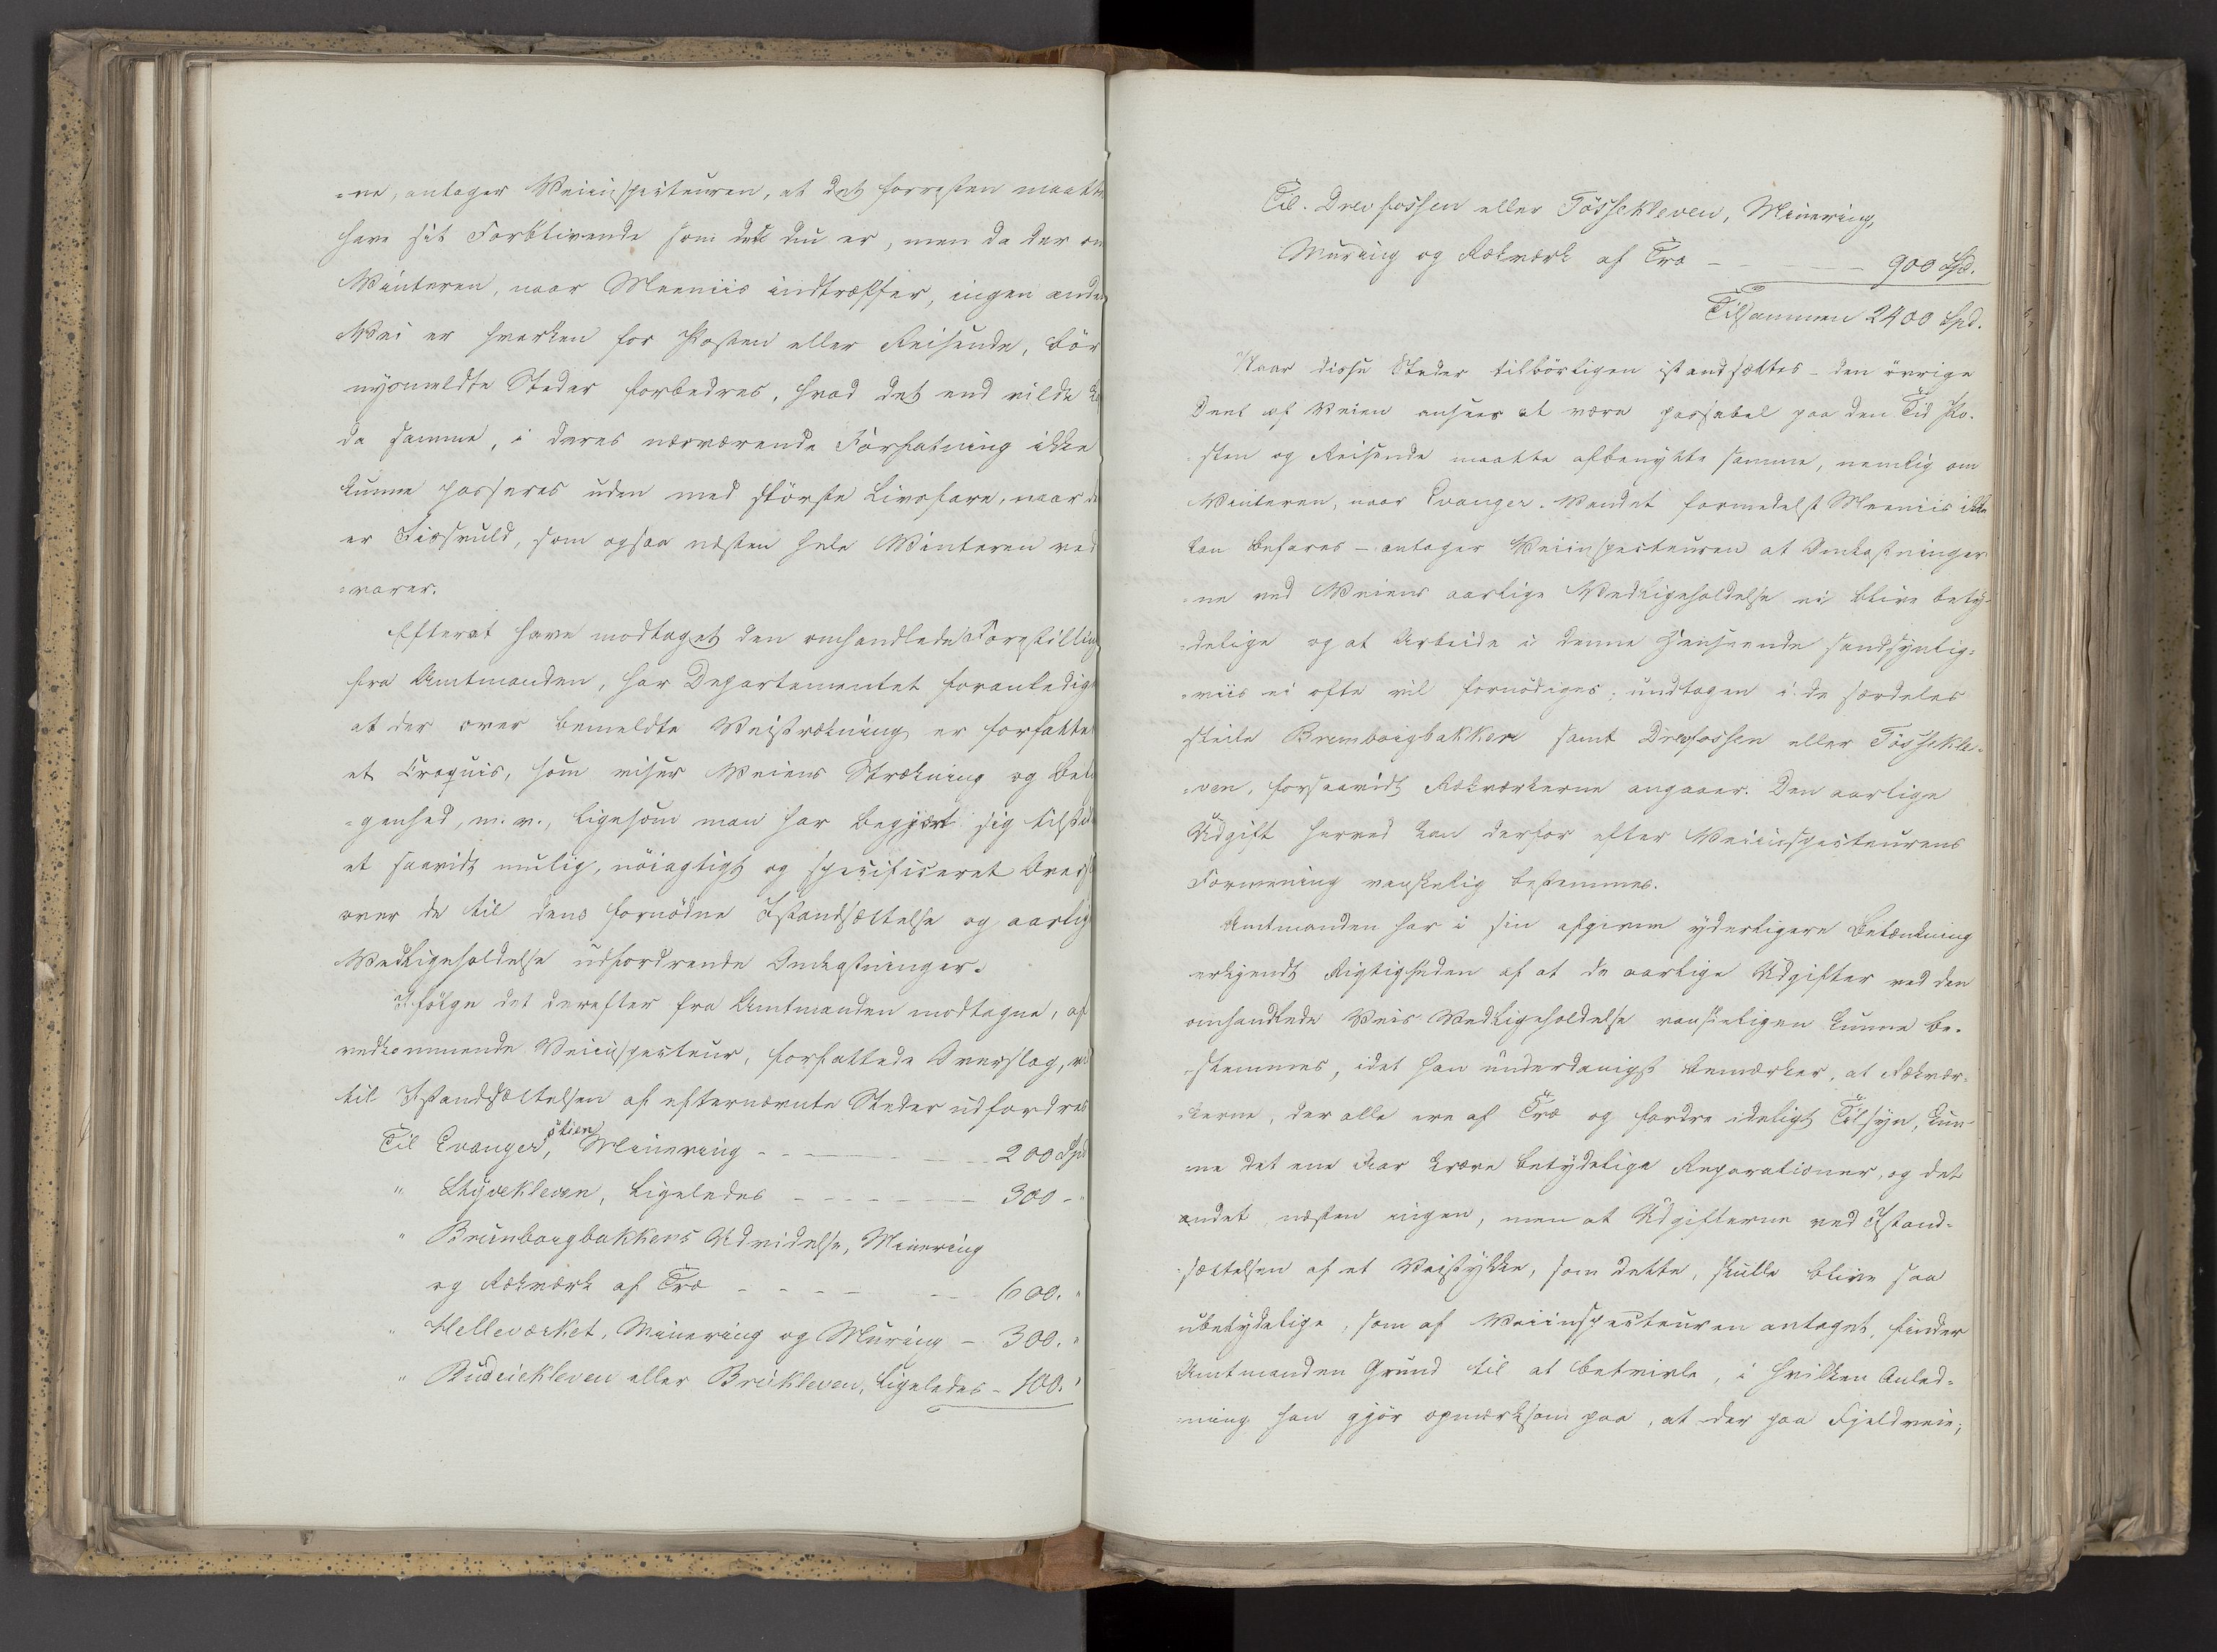 =re, antager Veiinspecteuren, at det forresten maatte
have sit Forblivende som det nu er, men da der om
Vinteren, naar Meeniis indtræffer, ingen anden
Vei er hverken for Posten eller Reisende, bör
nysmeldte Steder forbedres, hvad det end vilde
da samme, i deres nærværende Forfatning ikke
kunne passeres uden med största Livsfare, naar
er Iissvuld, som ogsaa næsten hele Vinteren ved
=varer.
Efterat have modtaget den omhandlede Forestilling
fra Amtmanden, har Departementet foranlediget
at der over bemeldte Veistrækning er forfattet
et Croquis, som viser Veiens Strækning og Beli
=genhed, m. v., ligesom man har begjært sig tilstillet
et saavidt mulig, nöiagtigt og specificeret Overslag
over de til dens fornödne Istandsættelse og aarlige
Vedligeholdelse udfordrende Omkostninger.
Ifölge det derefter fra Amtmanden modtagne, af
vedkommende Veiinspecteur, forfattede Overslag, vil
til Istandsættelsen af efternævnte Steder udfordres
Til Evangerstien, Minering - - - 200 Spd
" Skyvekleven, ligeledes - - - 300 - "
" Brunborgbakkens Udvidelse, Minering
og Rækværk af Træ - - - - - 600. "
" Helleværket, Minering og Muring - 300. "
" Budeiekleven eller Breikleven, ligeledes - 100. "
Til Drevfossen eller Fössekleven, Minering,
Muring og Rækværk af Træ - - - 900 Spd.
Tilsammen 2400 Spd.
Naar disse Steder tilbörligen istandsættes - den övrige
Deel af Veien ansees at være passabel paa den Tid Po-
sten og Reisende maatte afbenytte samme, nemlig om
Vinteren, naar Evanger-Vandet formedelst Meeniis ikke
kan befares - antager Veiinspecteuren at Omkostninger
=ne ved Veiens aarlige Vedligeholdelse ei blive bety-
=delige og at Arbeide i denne Henseende sandsynlig=
=viis ei ofte vil fornödiges; undtagen i de særdeles
steile Brunborgbakken samt Drevfossen eller Fössekle-
=ven, forsaavidt Rækværkerne angaaer. Den aarlige
Udgift herved kan derfor efter Veiinspecteurens
Formening vanskelig bestemmes.
Amtmanden har i sin afgivne yderligere Betænkning
erkjendt Rigtigheden af at de aarlige Udgifter ved den
omhandlede Veis Vedligeholdelse vanskeligen kunne be-
stemmes, idet han underdanigst bemærker, at Rækvær=
=kerne, der alle ere af Træ og fordre ideligt Tilsyn, kun-
=ne det ene Aar kræve betydelige Reparationer, og det
andet næsten ingen, men at Udgifterne ved Istand-
sættelsen af et Veistykke, som dette, skulle blive saa
ubetydelige, som af Veiinspecteuren antaget, finder
Amtmanden Grund til at betvivle, i hvilken Anled-
=ning han gjör opmærksom paa, at der paa Fjeldveie,